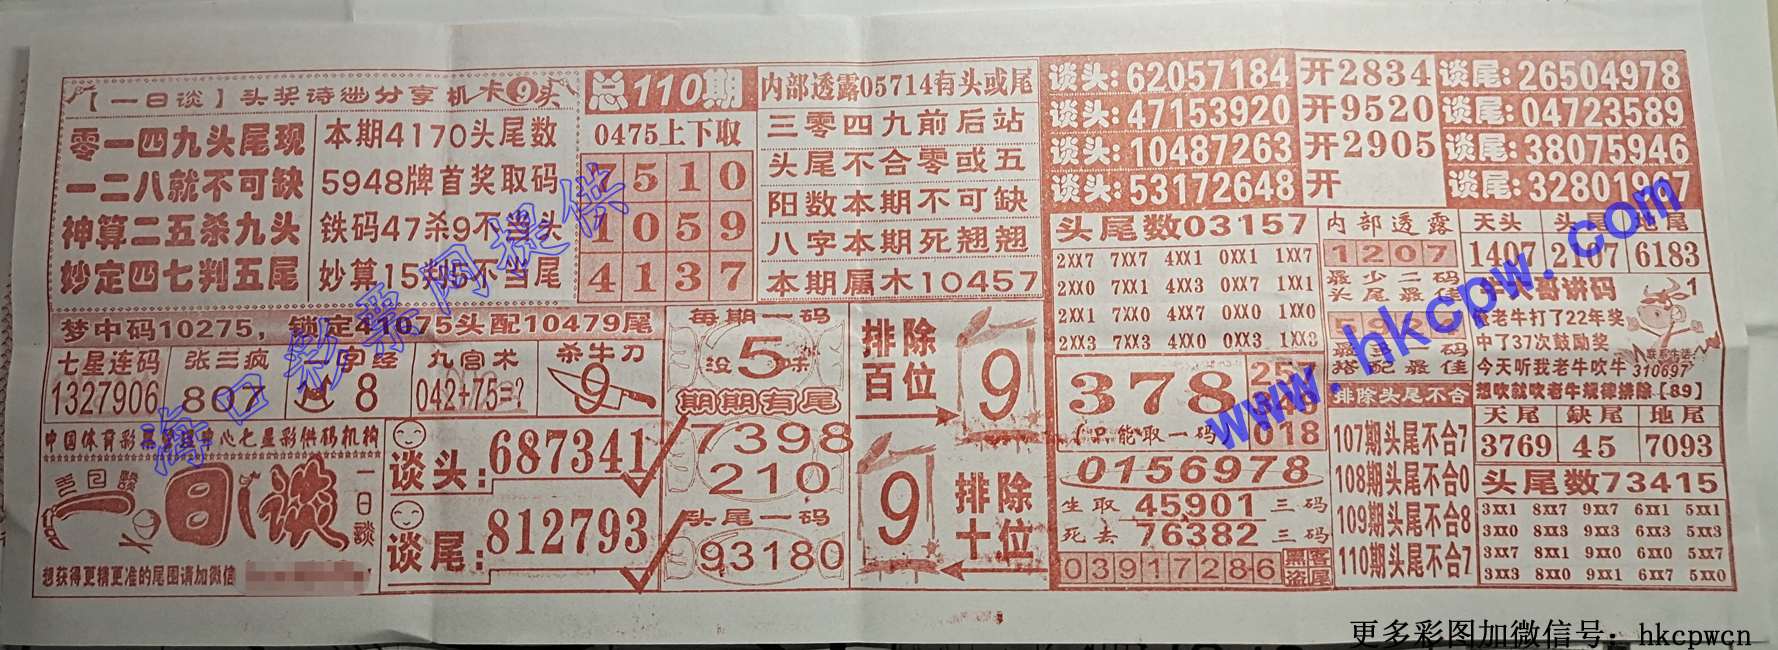 【一日谈】头奖诗谜分享机卡9头
零一四九头尾现
一二八就不可缺
神算二五杀九头
妙定四七判五尾
本期4170头尾数
5948牌首奖取码
铁码47杀9不当头
妙算15判5不当尾
总110期
0475上下取
7510
1059
4137
内部透露05714有头或尾
三零四九前后站
头尾不合零或五
阳数本期不可缺
八字本期死翘翘
本期属木10457
谈头:62057184 开2834 谈尾:26504978
谈头:47153920 开9520 谈尾:04723589
谈头:10487263 开2905 谈尾:38075946
谈头:53172648 开 谈尾:32801967
梦中码10275，锁定41075头配10479尾
七星连码
1327906
张三疯
807
字经
8
九宫术
042+75=?
杀牛刀
9
中国体育彩票管理中心七星彩供码机构
一日谈
一日谈
想获得更精更准的尾围请加微信
谈头:687341
谈尾:812793
每期一码
5
没来
期期有尾
7398
210
头尾一码
93180
排除百位
9
9
排除十位
头尾数03157
2XX7 7XX7 4XX1 0XX1 1XX7
2XX0 7XX1 4XX3 0XX7 1XX1
2XX1 7XX0 4XX7 0XX0 1XX0
2XX3 7XX3 4XX0 0XX3 1XX3
378
(只能取一码)
018
0156978
生取45901三码
死去76382三码
03917286
黑客盗尾
内部透露
1207
最少二码
头尾最码
搭配最佳
排除头尾不合
107期头尾不合7
108期头尾不合0
109期头尾不合8
110期头尾不合7
天头 头尾 地尾
1407 2107 6183
牛大哥讲码
1
老牛打了22年奖
中了37次鼓励奖
今天听我老牛吹牛
联系生活
310697
想吹就吹老牛规律排除【89】
天尾 缺尾 地尾
3769 45 7093
头尾数73415
3XX1 8XX7 9XX7 6XX1 5XX1
3XX0 8XX3 9XX3 6XX3 5XX3
3XX7 8XX1 9XX0 6XX0 5XX7
3XX3 8XX0 9XX1 6XX7 5XX0
海口彩票网提供
www.hkcpw.com
更多彩图加微信号：hkcpwcn